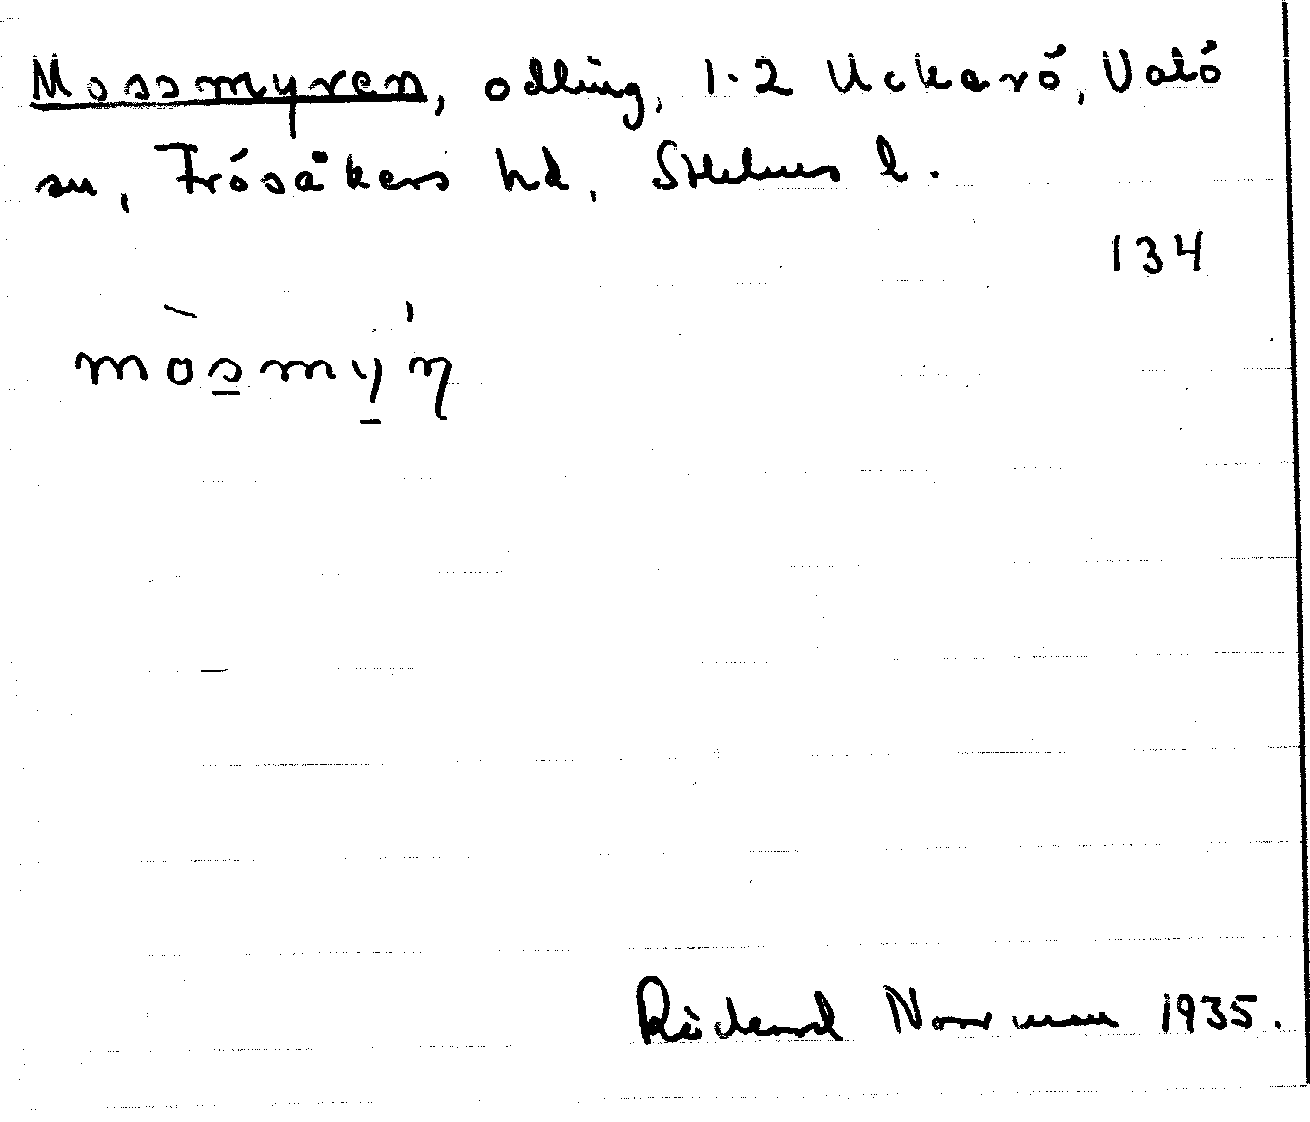 Mossmyren, odling, 1-2 Uckarö, Valö
sn, Frösåkers hd, Sthlms l.
134
mòsmy̠'ŋ
Rickard Norrman 1935.